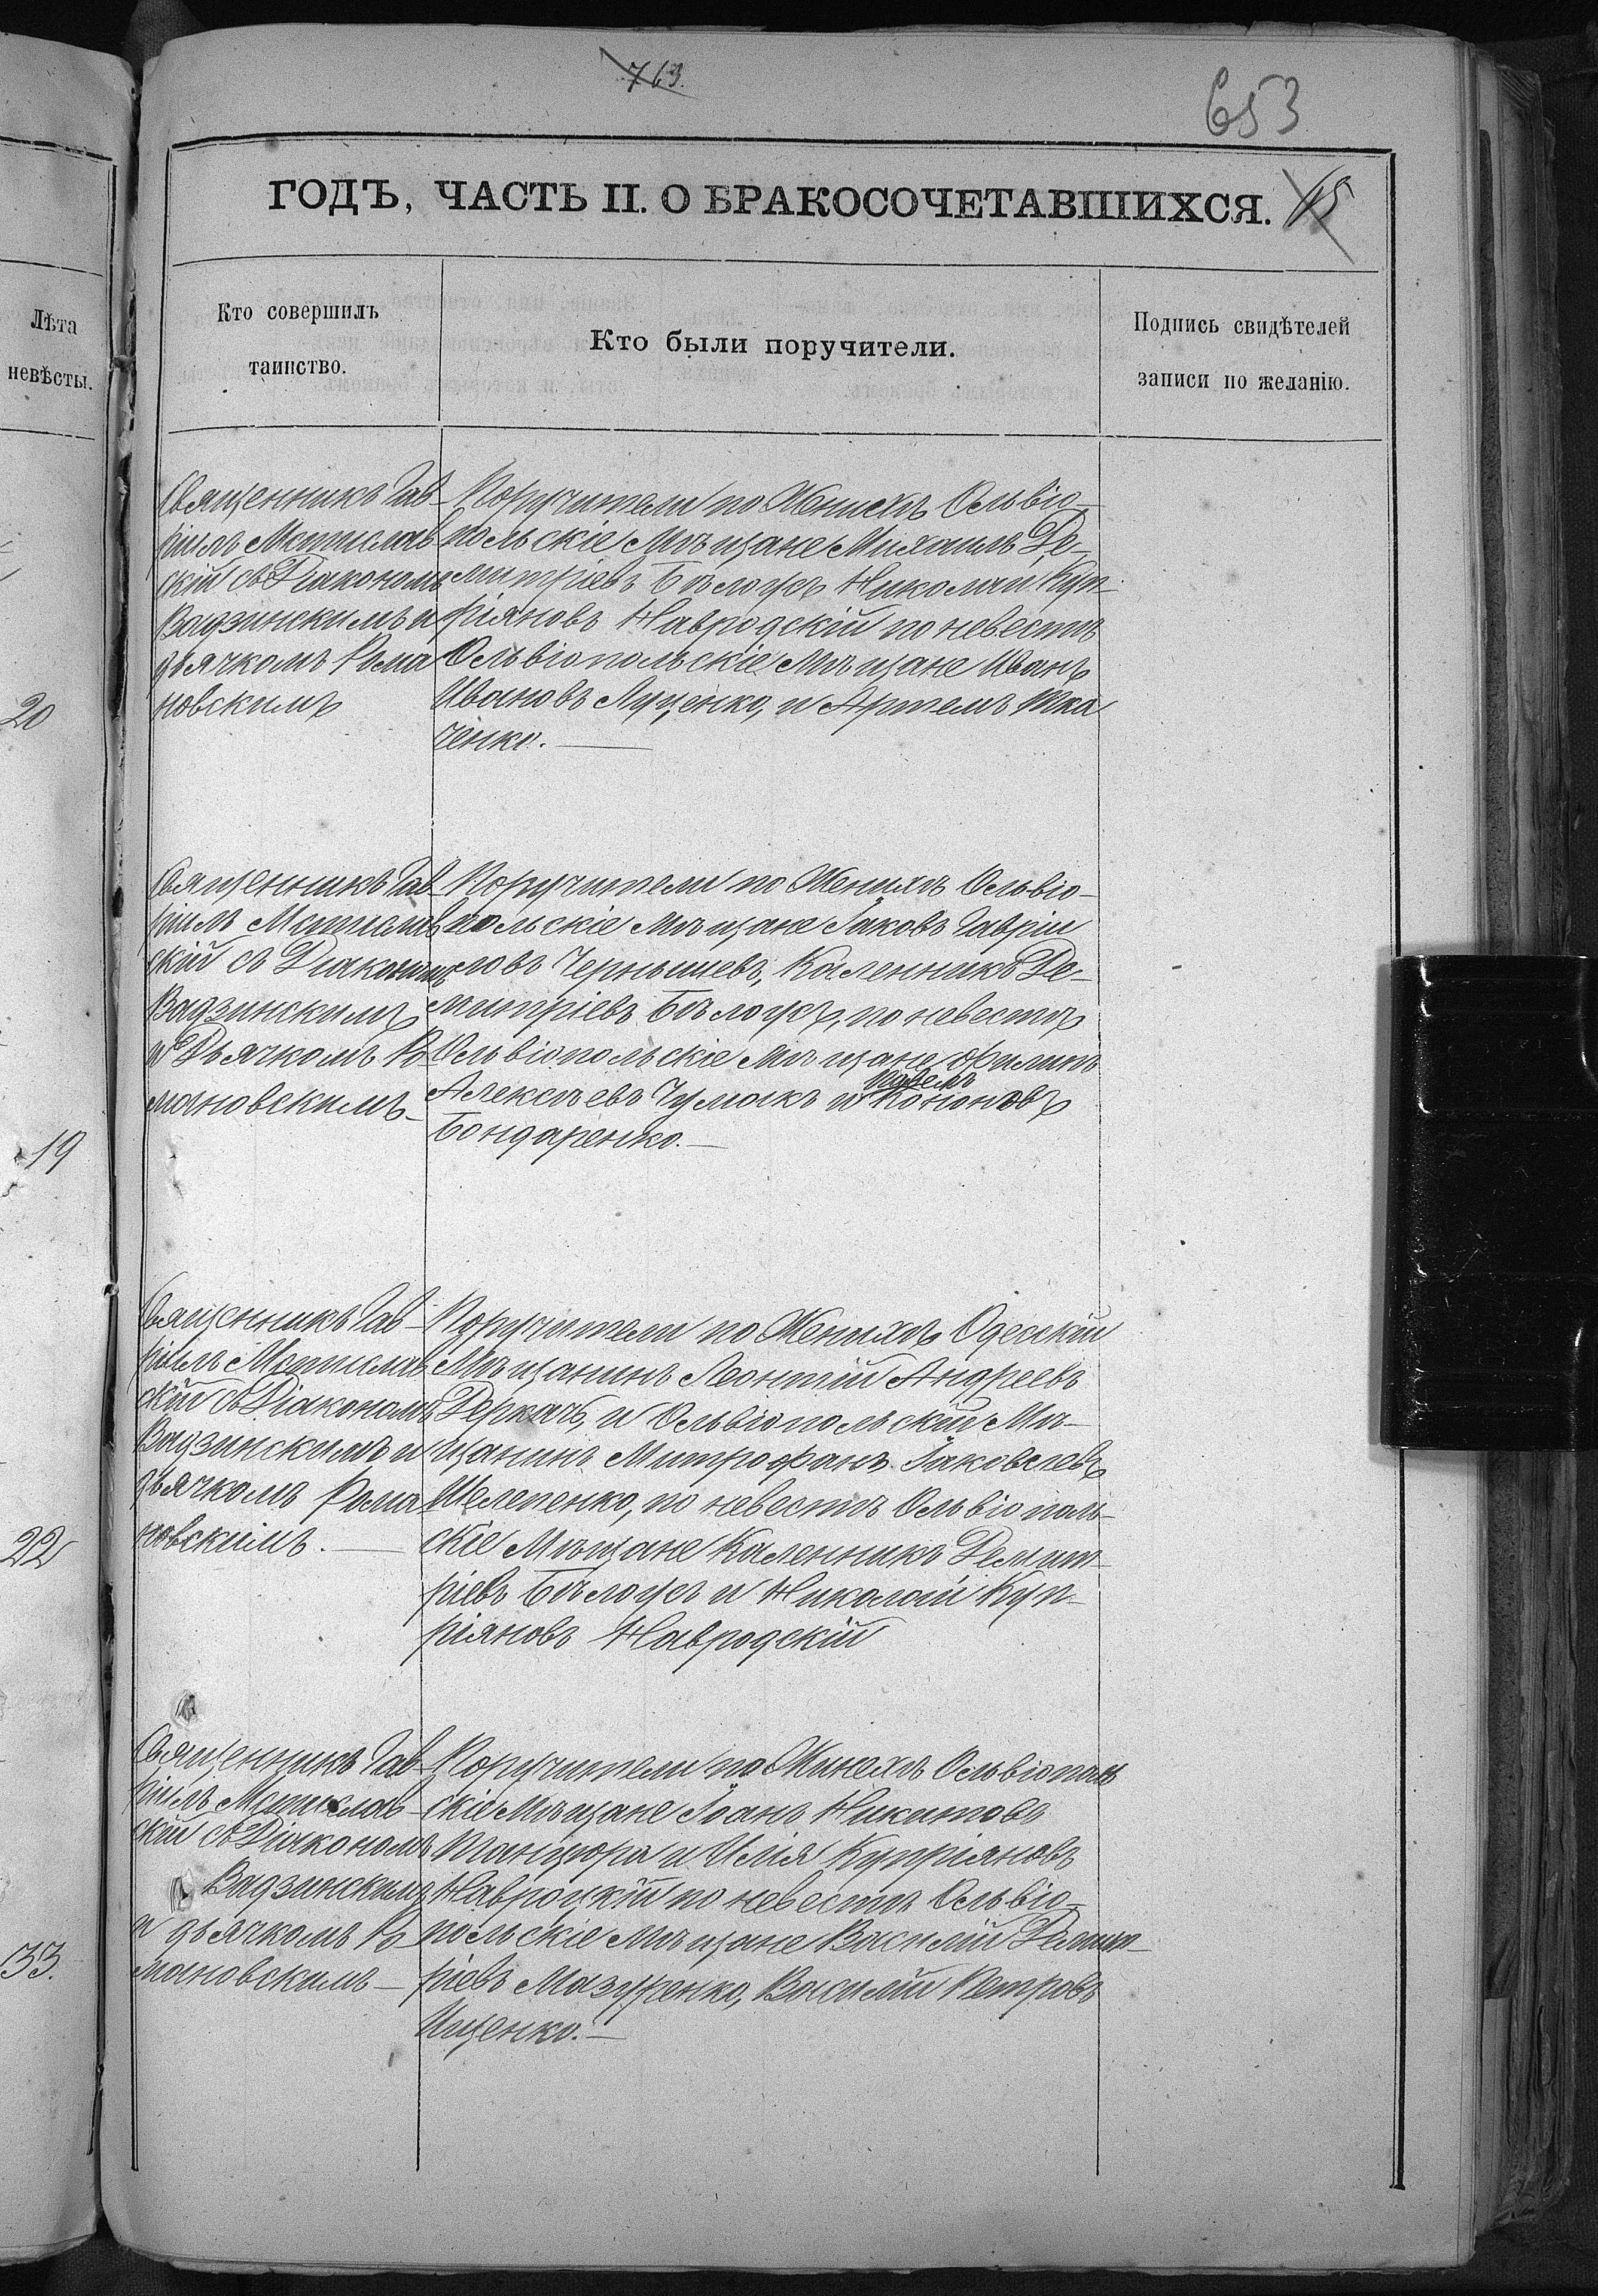 763.
653
ГОДЪ, ЧАСТЬ II. О БРАКОСОЧЕТАВШИХСЯ. 15
Лѣта
невѣсты.
Кто совершилъ
таинство.
Кто были поручители.
Подпись свидѣтелей
записи по желанію.
20
Священникъ Гав-
ріилъ Мстислав
скій съ Діакономъ
Вадзинскимъ и
дьячкомъ Рома
новскимъ
Поручители по Женихѣ Ольвіо-
польскіе Мѣщане Михаилъ Де-
митріевъ Бѣлоусъ Николай Куп-
ріяновъ Навродскій по невестѣ
Ольвіопольскіе Мѣщане Иванъ
Ивановъ Луценко, и Артемъ Тка
ченко.
19
Священникъ Гав-
ріилъ Мстислав
скій съ Діакономъ
Вадзинскимъ
и Дьячкомъ Ро-
мановскимъ
Поручители по Женихѣ Ольвіо-
польскіе Мѣщане Іаковъ Гавріи
ловъ Чернышевъ, Каленникъ Де-
митріевъ Бѣлоусъ, по невестѣ
Ольвіопольскіе Мѣщане Филипъ
Алексѣевъ Чумакъ и Павелъ Кононовъ
Бондаренко.
22
Священникъ Гав-
ріилъ Мстислав
скій съ Діакономъ
Вадзинскимъ и
дьячкомъ Рома
новскимъ.
Поручители по Женихѣ Одесскій
Мѣщанинъ Леонтій Андреевъ
Деркачъ, и Ольвіопольскій Мѣ-
щанинъ Митрофанъ Іаковлевъ
Шелепенко, по невестѣ Ольвіополь-
скіе Мѣщане Каленникъ Демит-
ріевъ Бѣлоусъ и Николай Куп-
ріяновъ Навродскій
33.
Священникъ Гав-
ріилъ Мстислав-
скій съ Діакономъ
Вадзинскимъ
и дьячкомъ Ро-
мановскимъ
Поручители по Жинехѣ Ольвіополь
скіе Мѣщане Іоанъ Никитовъ
Танцюра и Илія Купріяновъ
Навроцкій по невестѣ Ольвіо-
польскіе Мѣщане Василій Демит-
ріевъ Мазуренко, Василій Петровъ
Ищенко.